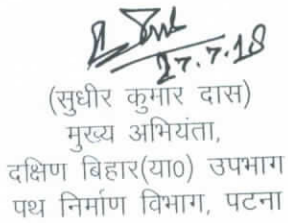 27.7.18
(सुधीर कुमार दास)
मुख्य अभियंता,
दक्षिण बिहार(या0) उपभाग
पथ निर्माण विभाग, पटना